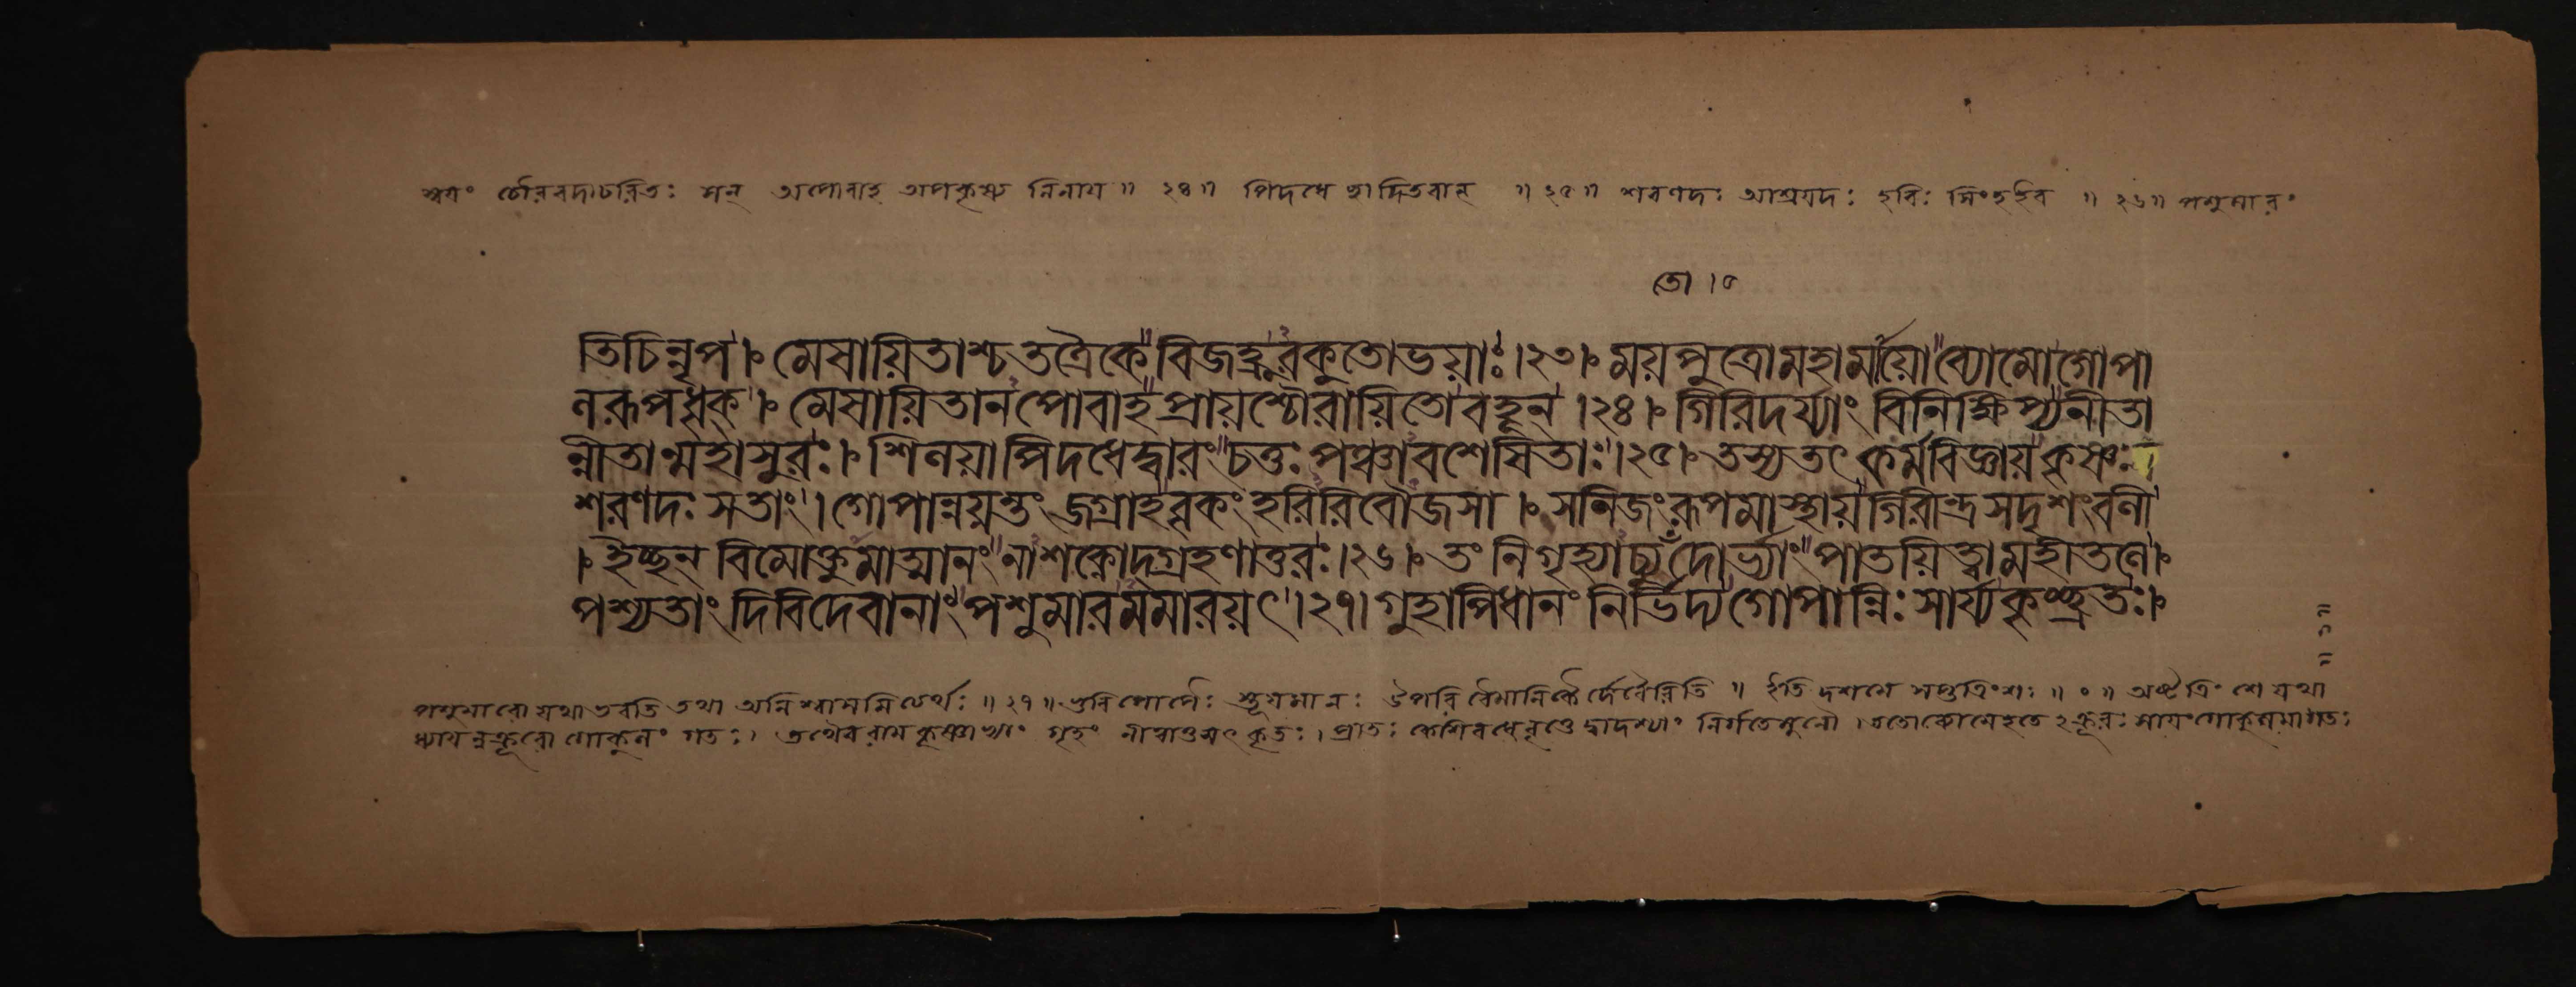 স্বয়ং চৌরবদাচরিতঃ সন্ অপোবাহ অপকৃষ্য নিনায়॥ ২৪॥ পিদধে ছাদিতবান্ ॥ ২৫॥ শরণদঃ আশ্রয়দঃ হরিঃ সিংহইব ॥ ২৬॥ পশুমারং
তো ।৫
তিচিন্নৃপ।০ মেষায়িতাশ্চতত্রৈকে"বিজহ্রুরকুতোভয়াঃ।২৩।০ ময়পুত্রোমহামায়ো"ব্যোমোগোপা
নরূপধৃক্।০ মেষায়িতানপোবাহ"প্রায়শ্চৌরায়িতোবহূন্।২৪।০ গিরিদর্য্যাং বিনিক্ষিপ্যনীতা
ন্নীতান্মহাসুরঃ।০ শিলয়াপিদধেদ্বারং"চতুঃপঞ্চাবশেষিতাঃ।২৫।০ তস্যতৎ কর্মবিজ্ঞায়"কৃষ্ণঃ
শরণদঃ সতাং। গোপান্নয়ন্তং জগ্রাহ"বৃকং হরিরিবৌজসা।০ সনিজংরূপমাস্থায়"গিরীন্দ্রসদৃশংবলী
।০ ইচ্ছন্ বিমোক্তুমাত্মানং"নাশক্নোদ্গ্রহণাতুরঃ।২৬।০ তং নিগৃহ্যাচ্যুতোদোর্ভ্যাং"পাতয়িত্বামহীতলে।০
পশ্যতাং দিবিদেবানাং"পশুমারমমারয়ৎ।২৭। গুহাপিধানং নির্ভিদ্য"গোপান্নিঃসার্য্যকৃচ্ছ্রতঃ।০
পশুমারো যথা ভবতি তথা অনিশ্বাসমিত্যর্থঃ॥ ২৭॥ ভুবি গোপৈঃ স্তূয়মানঃ উপরি বৈমানিকৈর্দেবৈরিতি ॥ ইতি দশমে সপ্তত্রিংশঃ॥ ০॥ অষ্টত্রিংশে যথা
ধ্যায়ন্নক্রূরো গোকুলং গতঃ। তথৈব রামকৃষ্ণাভ্যাং গৃহং নীত্বাতু সৎকৃতঃ। প্রাতঃ কেশিবধে দ্বাদশ্যাং নির্গতেমুনৌ। ততোব্যোমেহতে ২ক্রূরঃ সায়ংগোকুলমাগতঃ